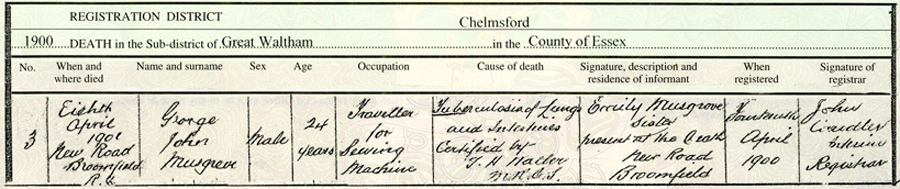 REGISTRATION DISTRICT Chelmsford
1900 DEATH in the Sub-district of Great Waltham in the County of Essex
No. When and where died Name and surname Sex Age Occupation Cause of death Signature, description and residence of informant When registered Signature of registrar
3
Eighth
April
1901
New Road
Broomfield
R.
George
John
Musgrove
Male
24
years
Traveller
for
Sewing
Machine
Tuberculosis of Lungs
and Intestines
Certified by
T. H Waller
M.R.C.S.
Emily Musgrove
Sister
present at the death
New Road
Broomfield
Fourteenth
April
1900
John
Interim
Registrar